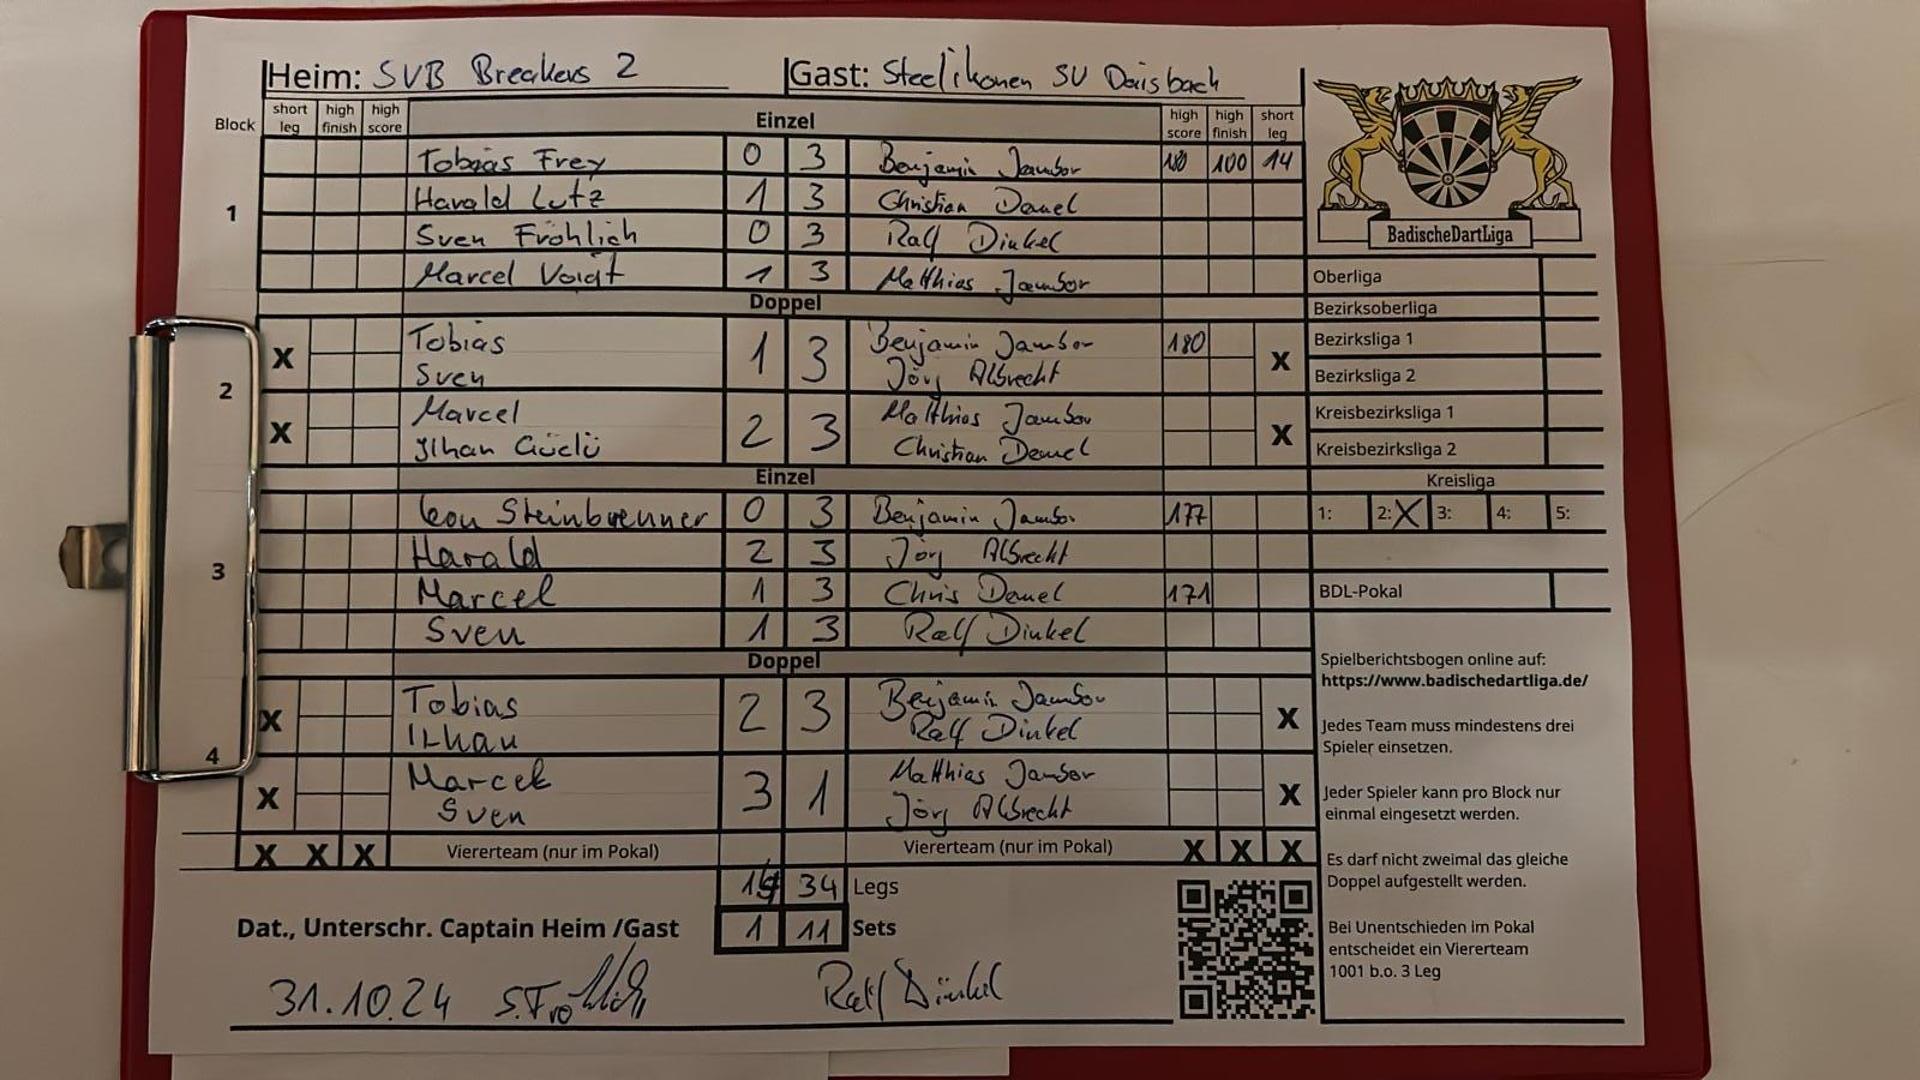 Heim: SVB Breakers 2 Gast: Steelikonen SV Daisbach
Block short leg high finish high score Einzel high score high finish short leg
1
Tobias Frey 0 3 Benjamin Jambor 180 100 14
Harald Lutz 1 3 Christian Demel
Sven Fröhlich 0 3 Ralf Dinkel
Marcel Voigt 1 3 Matthias Jambor
BadischeDartLiga
Oberliga
Doppel
Bezirksoberliga
2
X Tobias 1 3 Benjamin Jambor 180 X
Sven Jörg Albrecht
Bezirksliga 1
Bezirksliga 2
X Marcel 2 3 Matthias Jambor X
Ilhan Güclü Christian Demel
Kreisbezirksliga 1
Kreisbezirksliga 2
Einzel
Kreisliga
3
Leon Steinbrenner 0 3 Benjamin Jambor 177
1: 2: X 3: 4: 5:
Harald 2 3 Jörg Albrecht
Marcel 1 3 Chris Demel 171
BDL-Pokal
Sven 1 3 Ralf Dinkel
Doppel
4
X Tobias 2 3 Benjamin Jambor X
Ilhan Ralf Dinkel
X Marcel 3 1 Matthias Jambor X
Sven Jörg Albrecht
X X X Viererteam (nur im Pokal) Viererteam (nur im Pokal) X X X
34 Legs
Dat., Unterschr. Captain Heim /Gast 1 11 Sets
31.10.24 S.Fröhlich Ralf Dinkel
Spielberichtsbogen online auf:
https://www.badischedartliga.de/
Jedes Team muss mindestens drei
Spieler einsetzen.
Jeder Spieler kann pro Block nur
einmal eingesetzt werden.
Es darf nicht zweimal das gleiche
Doppel aufgestellt werden.
Bei Unentschieden im Pokal
entscheidet ein Viererteam
1001 b.o. 3 Leg